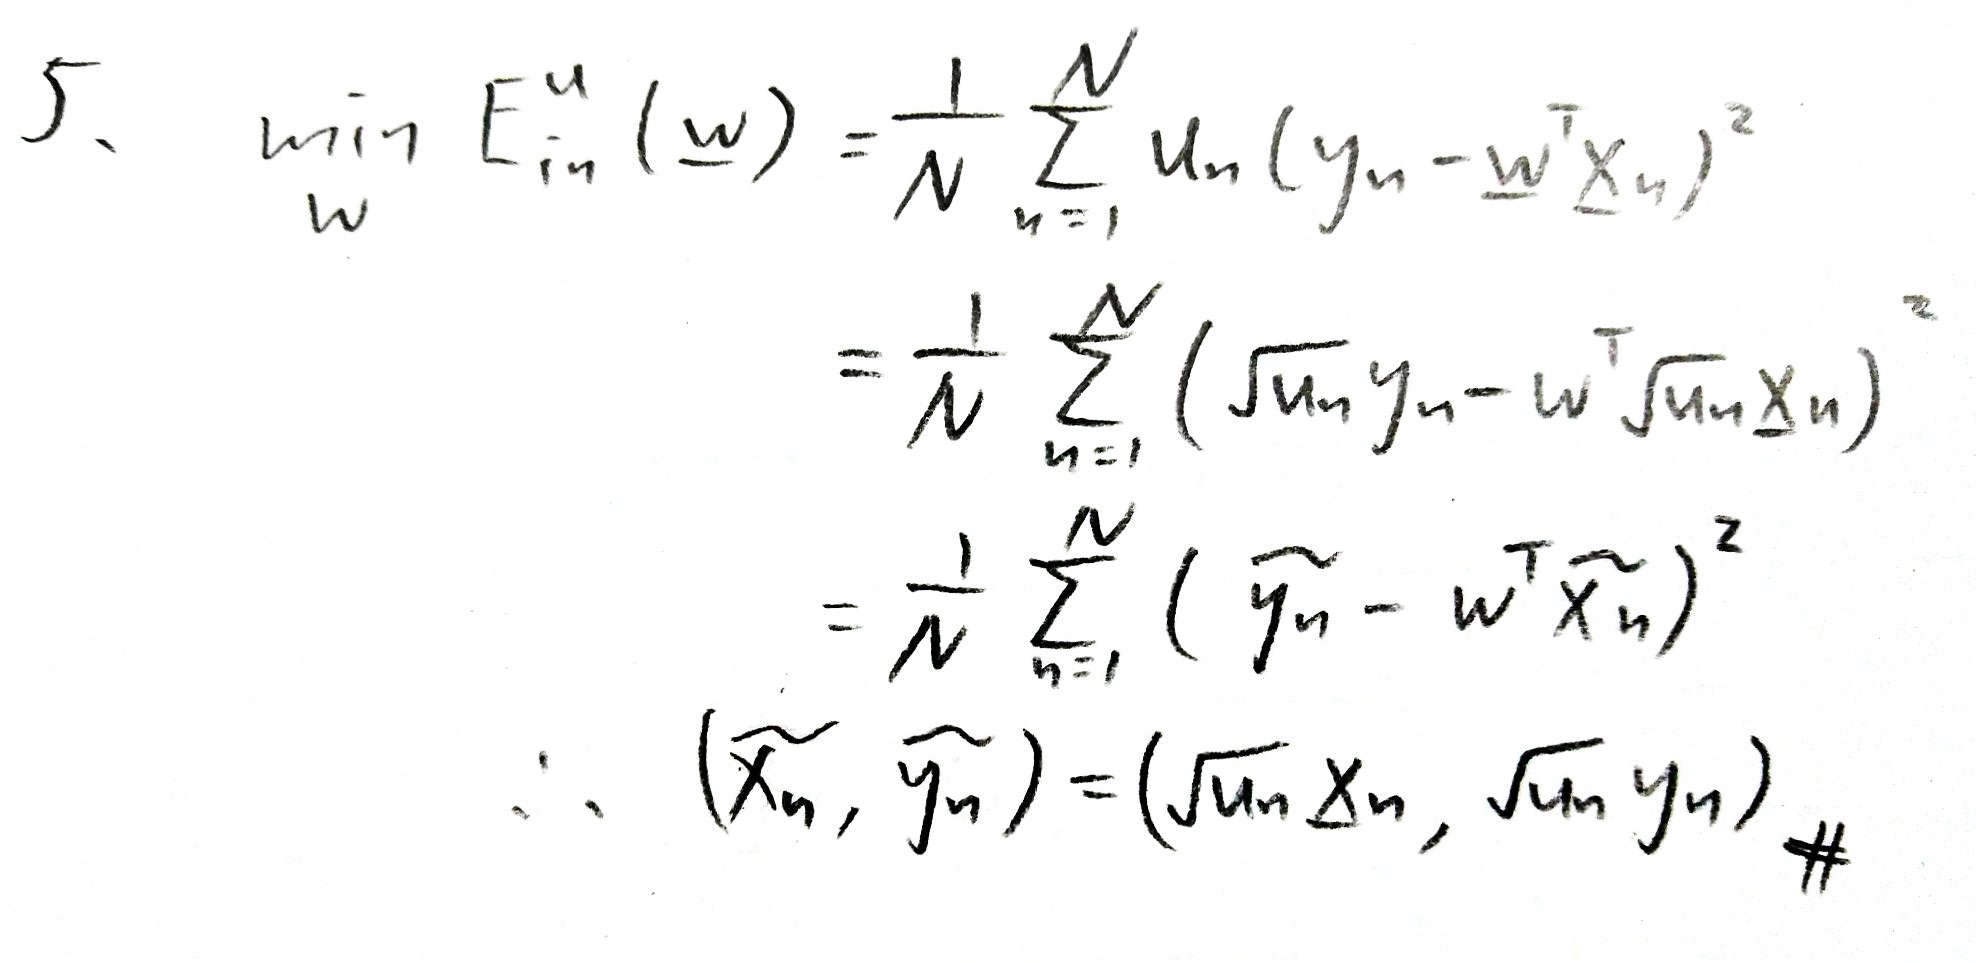 5、 min_w E_in^u (w̲) = 1/N ∑_{n=1}^{N} u_n (y_n - w̲^T x̲_n)^2
= 1/N ∑_{n=1}^{N} (√u_n y_n - w^T √u_n x̲_n)^2
= 1/N ∑_{n=1}^{N} (ỹ_n - w^T x̃_n)^2
∴ (x̃_n, ỹ_n) = (√u_n x̲_n, √u_n y_n) #